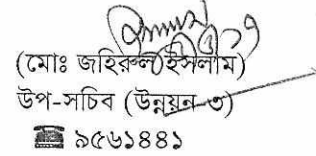 (মোঃ জহিরুল ইসলাম)
উপ-সচিব (উন্নয়ন-৩)
☎ ৯৫৬১৪৪১